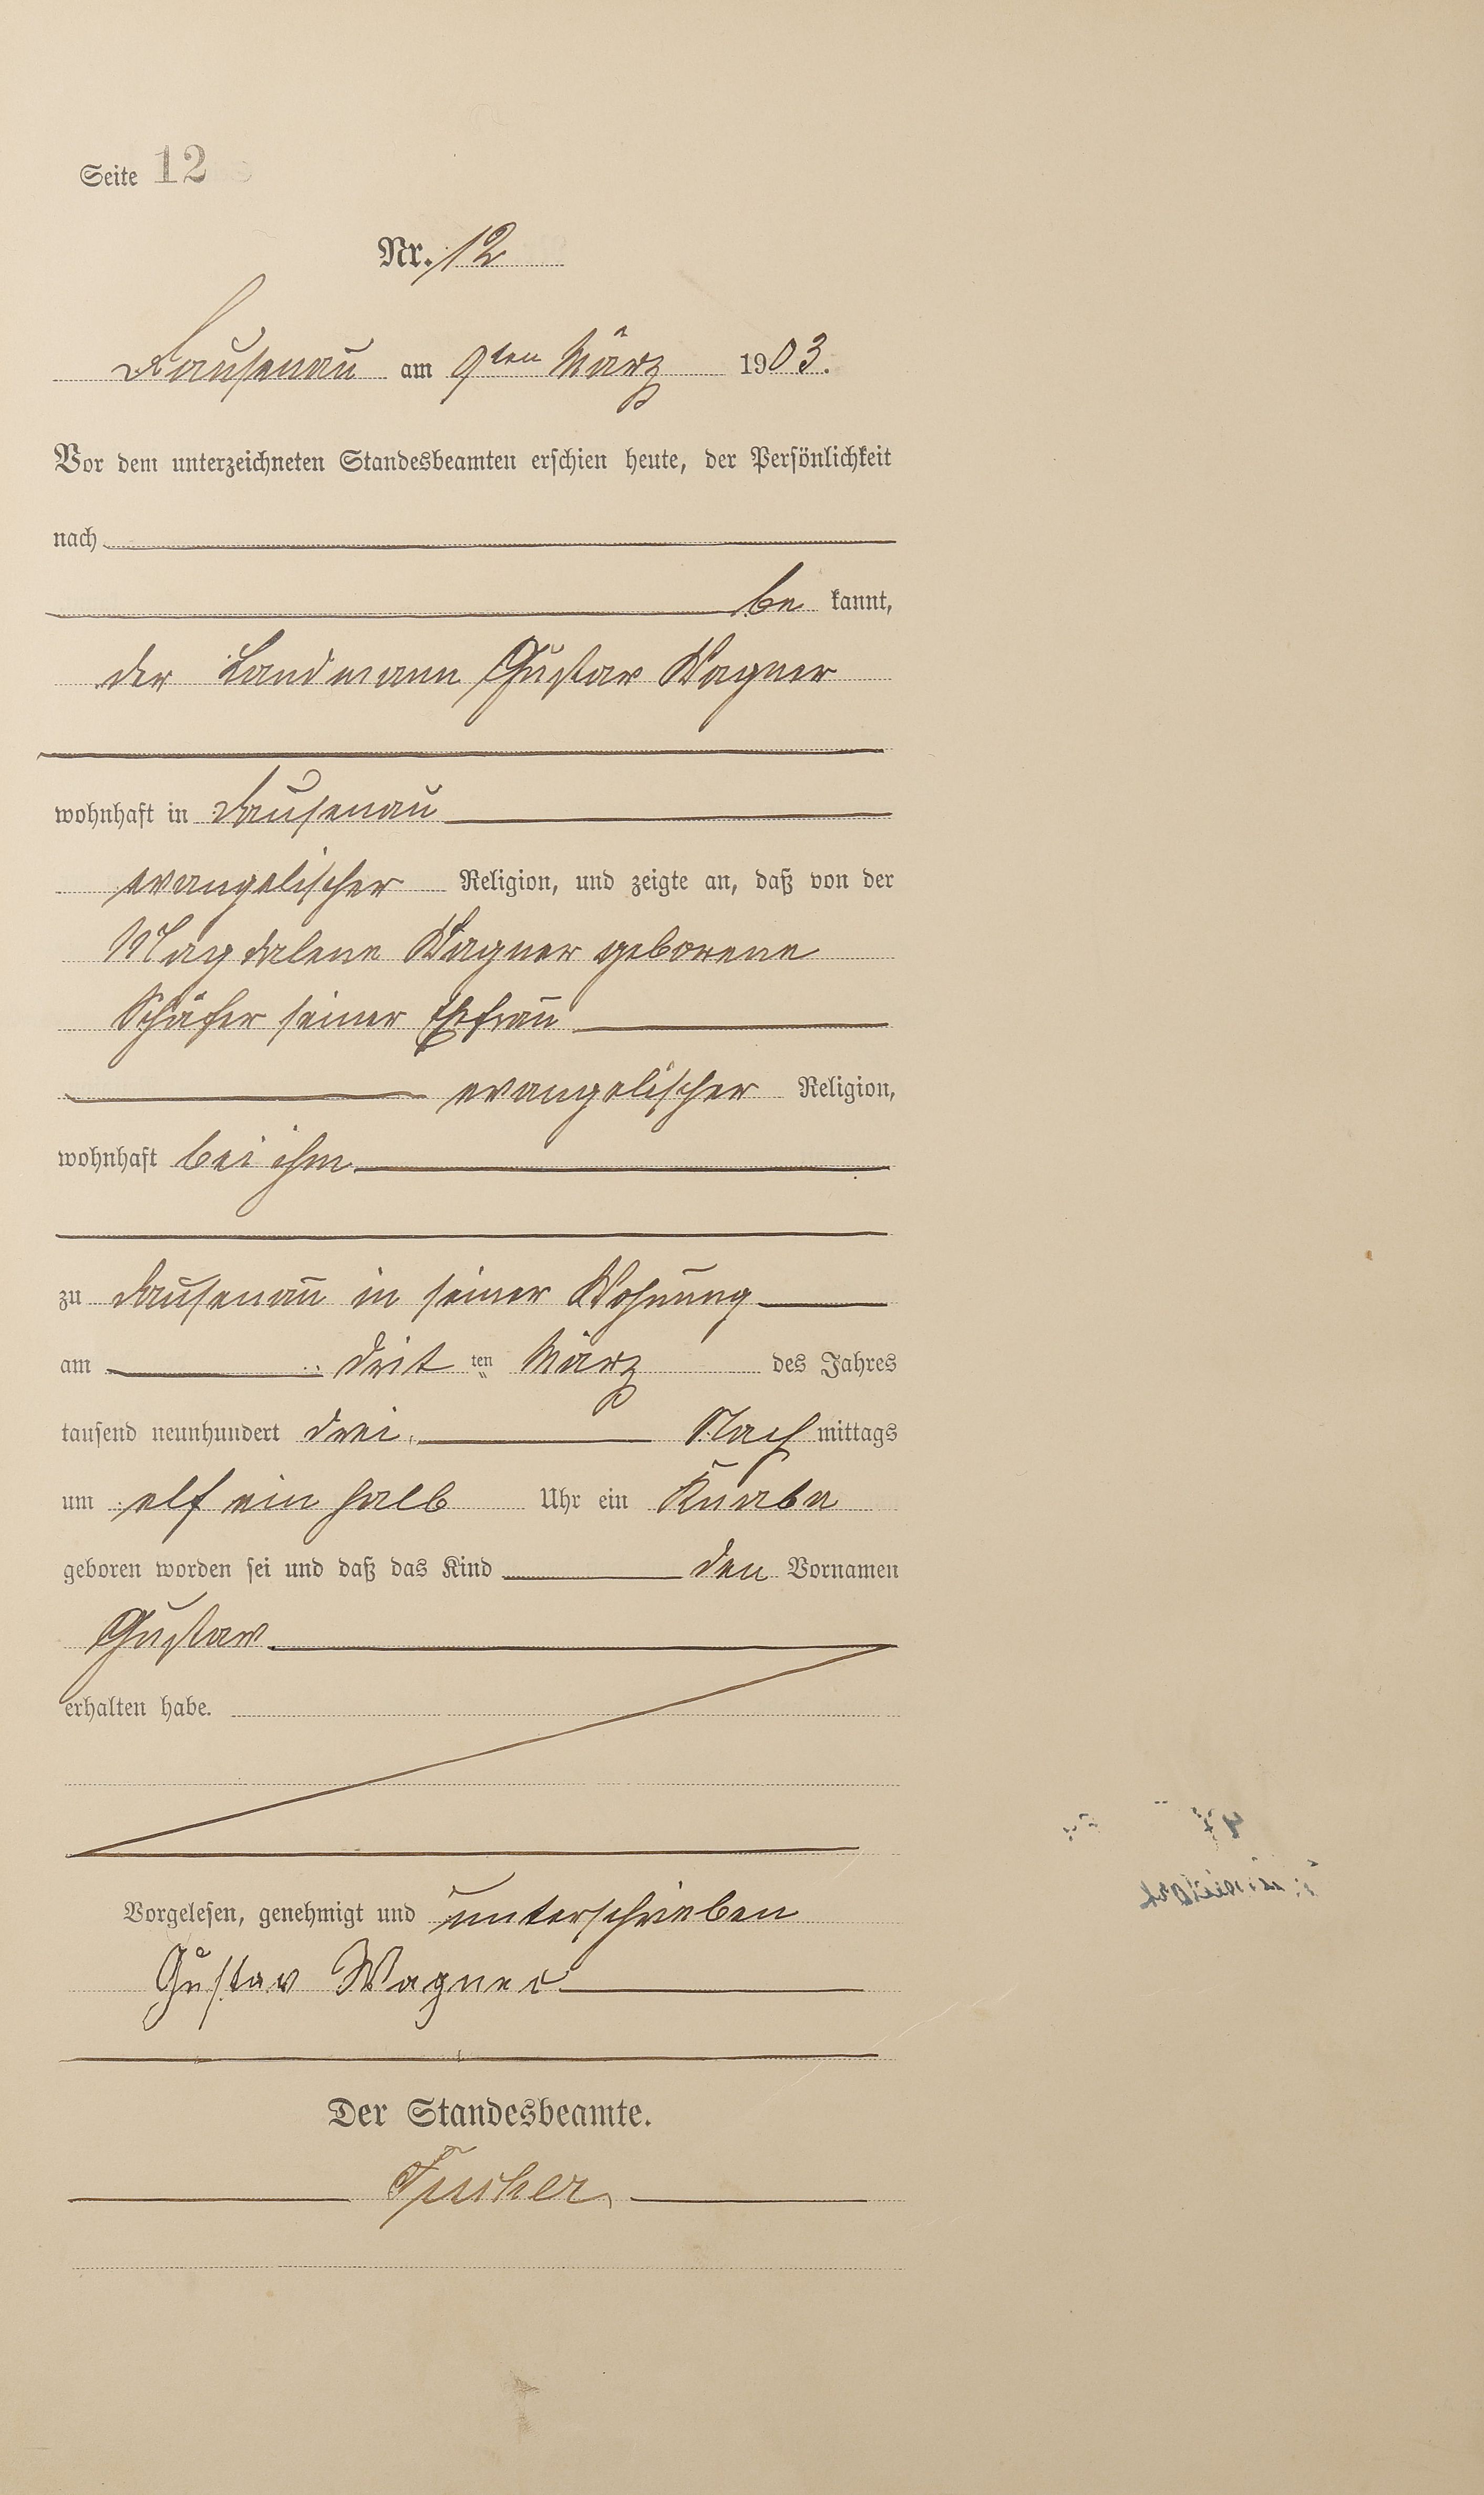 Seite 12
Nr. 12
Dausenau am 9ten März 1903.
Vor dem unterzeichneten Standesbeamten erschien heute, der Persönlichkeit
nach
be kannt,
der Landmann Gustav Wagner
wohnhaft in Dausenau
evangelischer Religion, und zeigte an, daß von der
Magdalene Wagner geborene
Schäfer seiner Ehefrau
evangelischer Religion,
wohnhaft bei ihm
zu Dausenau in seiner Wohnung
am drit ten März des Jahres
tausend neunhundert drei Nach mittags
um elf ein halb Uhr ein Knabe
geboren worden sei und daß das Kind den Vornamen
Gustav
erhalten habe.
Vorgelesen, genehmigt und unterschrieben
Gustav Wagner
Der Standesbeamte.